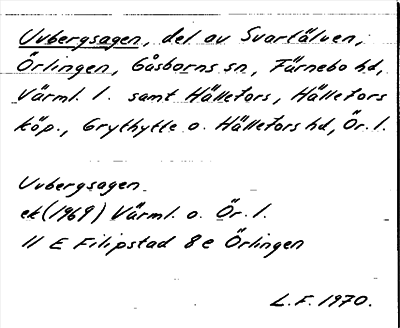 Uvbergsagen, del av Svartälven,
Örlingen, Gåsborns sn, Färnebo hd,
Värml. l. samt Hällefors, Hällefors
köp., Grythytte o. Hällefors hd, Ör. l.
Uvbergsagen
ek (1969) Värml. o. Ör. l.
11 E Filipstad 8 e Örlingen
L.F. 1970.